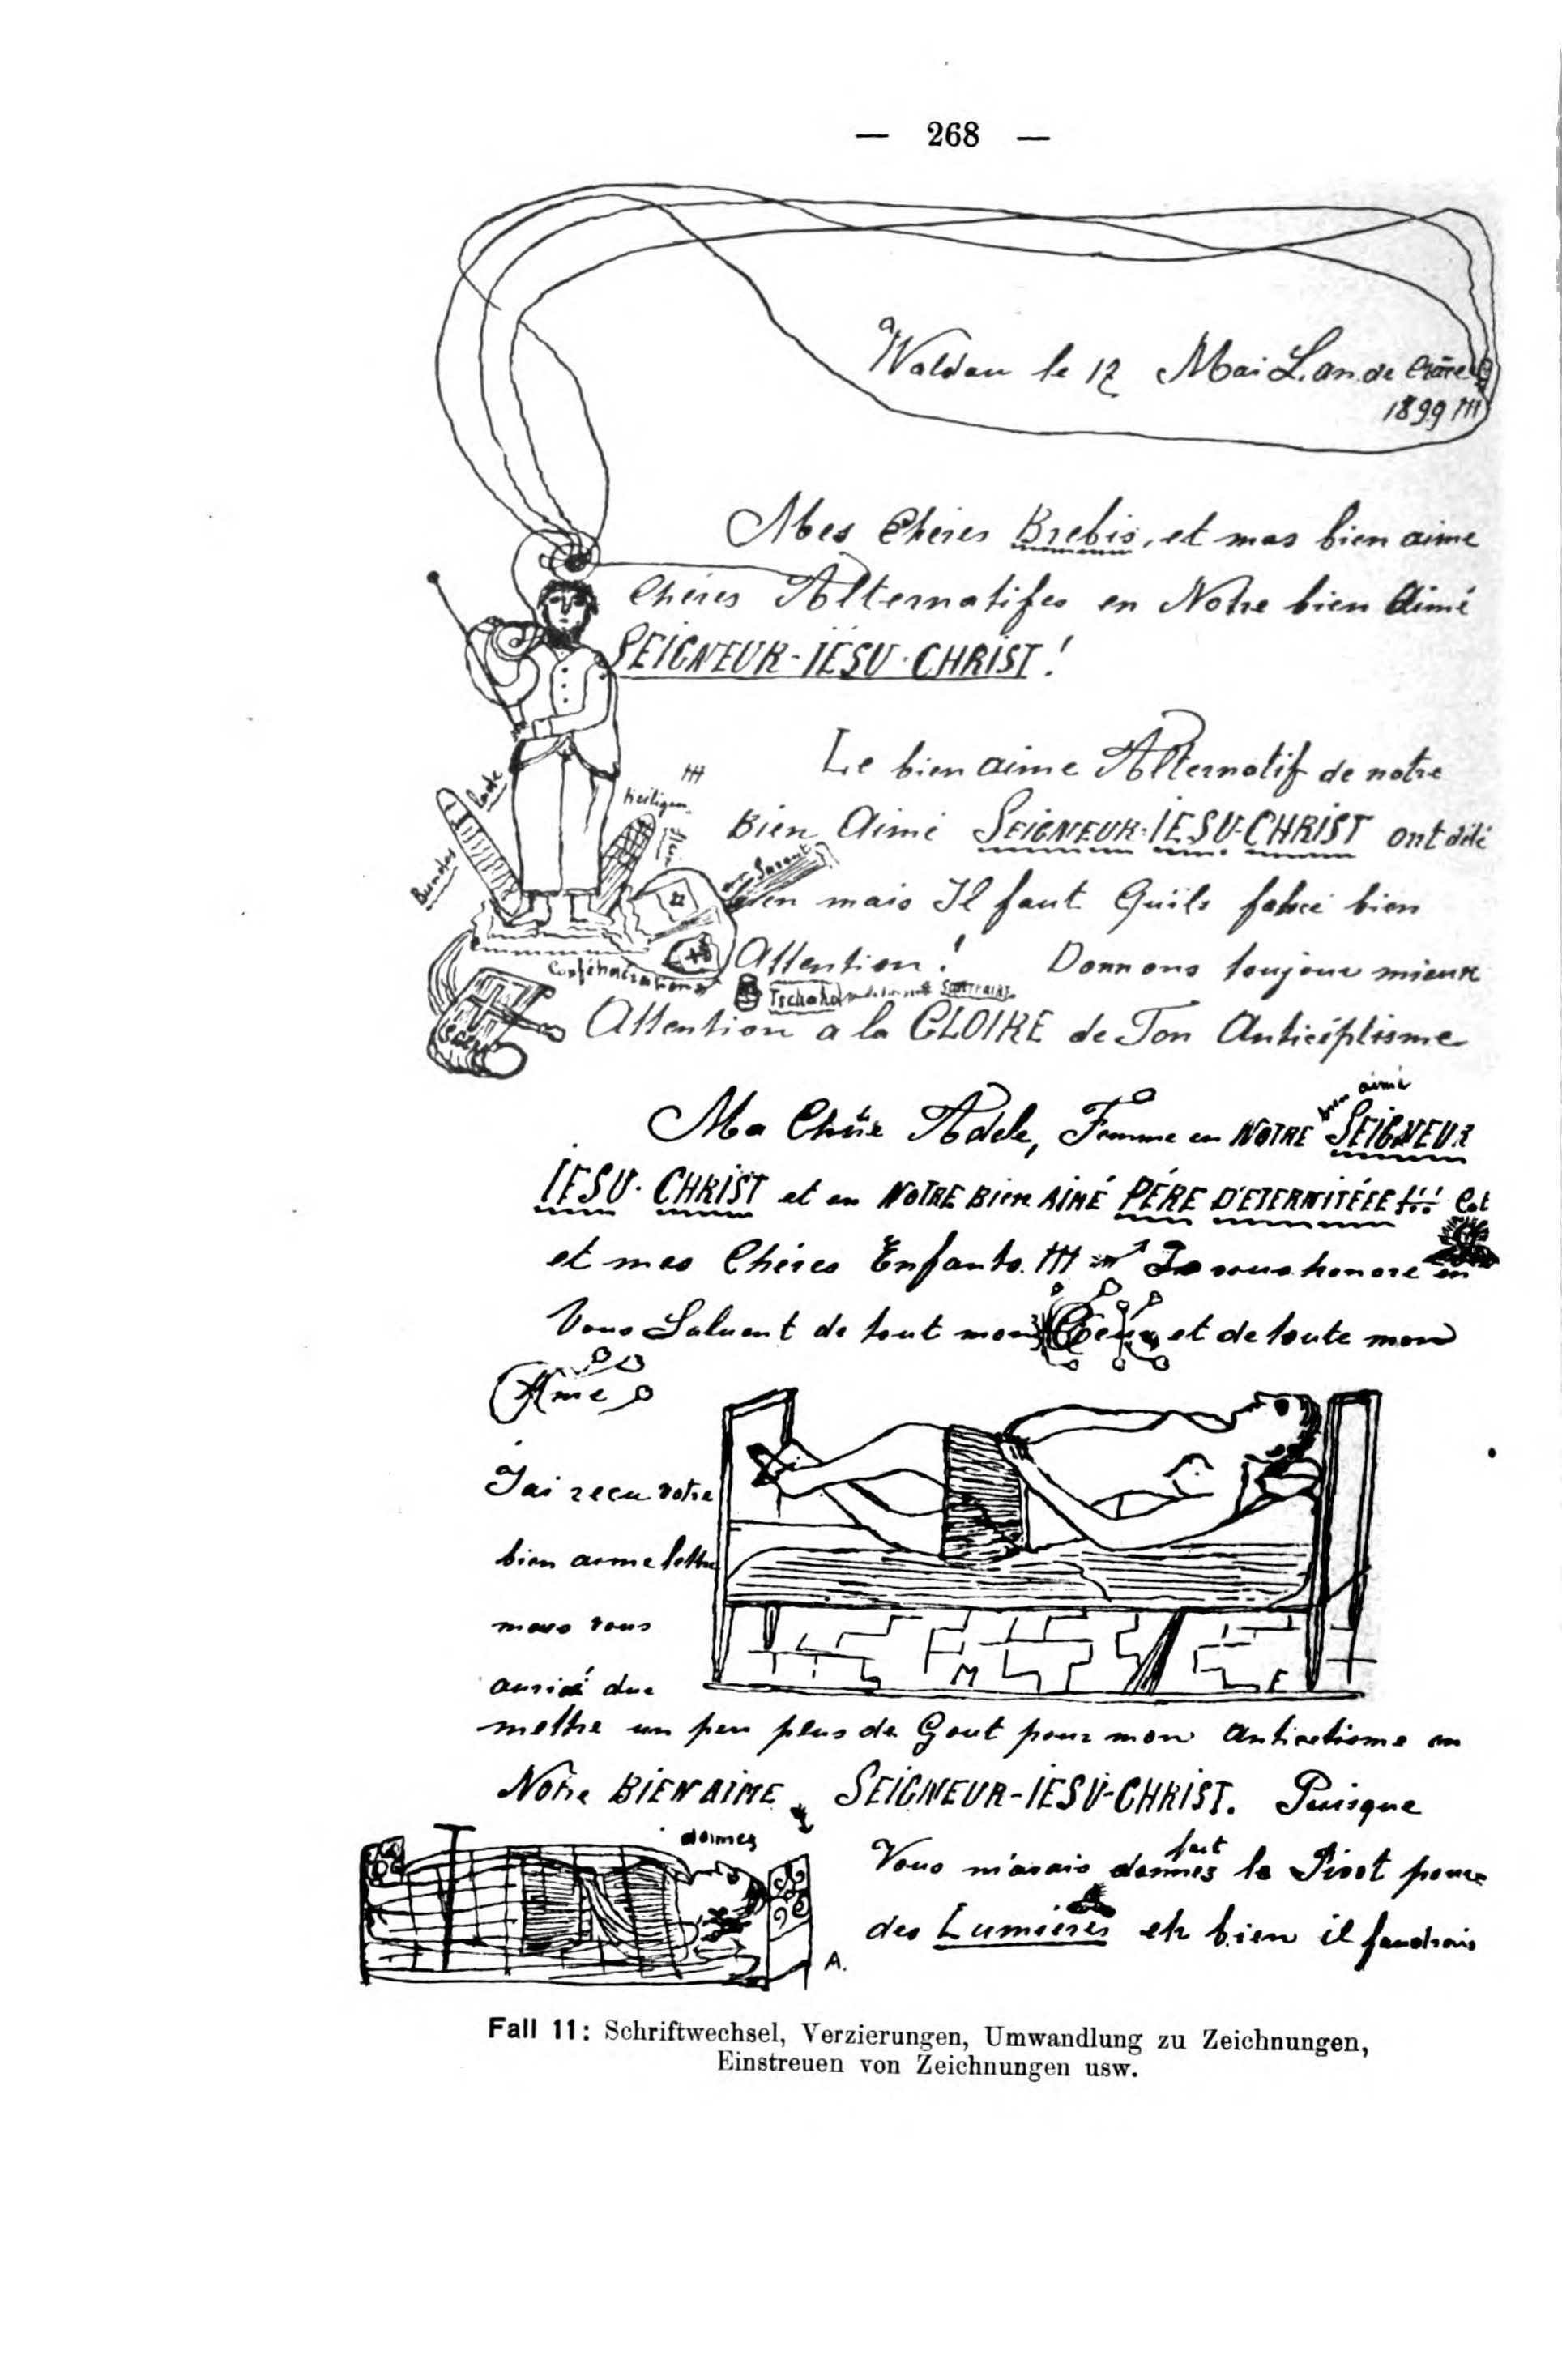 — 268 —
a Waldau le 12 Mai L.an de Grâce
1899 ttt
Mes Chères Brebis, et mes bien aime
Chères Alternatifes en Notre bien Aimé
SEIGNEUR-IESU-CHRIST!
Le bien aime Alternatif de notre
Bien Aimé SEIGNEUR-IESU-CHRIST ont été
ttt
Lade
Heiligen
Bundes
bien mais Il faut Quils fasse bien
Attention! Donnons toujour mieux
Tschako
Attention a la GLOIRE de Ton Anticéptisme
Ma Chère Adele, Femme en NOTRE bien aimé SEIGNEUR
IESU-CHRIST et en NOTRE Bien AIMÉ PÉRE D'ETERNITÉEE !!!
et mes Chères Enfants. ttt Je vous honore en
Vous Saluent de tout mon Coeur et de toute mon
Ame
J'ai recu votre
bien aime lettre
mais vous
aurié due
M F
mettre un peu plus de Gout pour mon Anticetisme en
Notre BIEN AIME SEIGNEUR-IESU-CHRIST. Puisque
Vous m'avais donnes fait le Pivot pour
des Lumières eh bien il faudrais
A.
Fall 11: Schriftwechsel, Verzierungen, Umwandlung zu Zeichnungen,
Einstreuen von Zeichnungen usw.